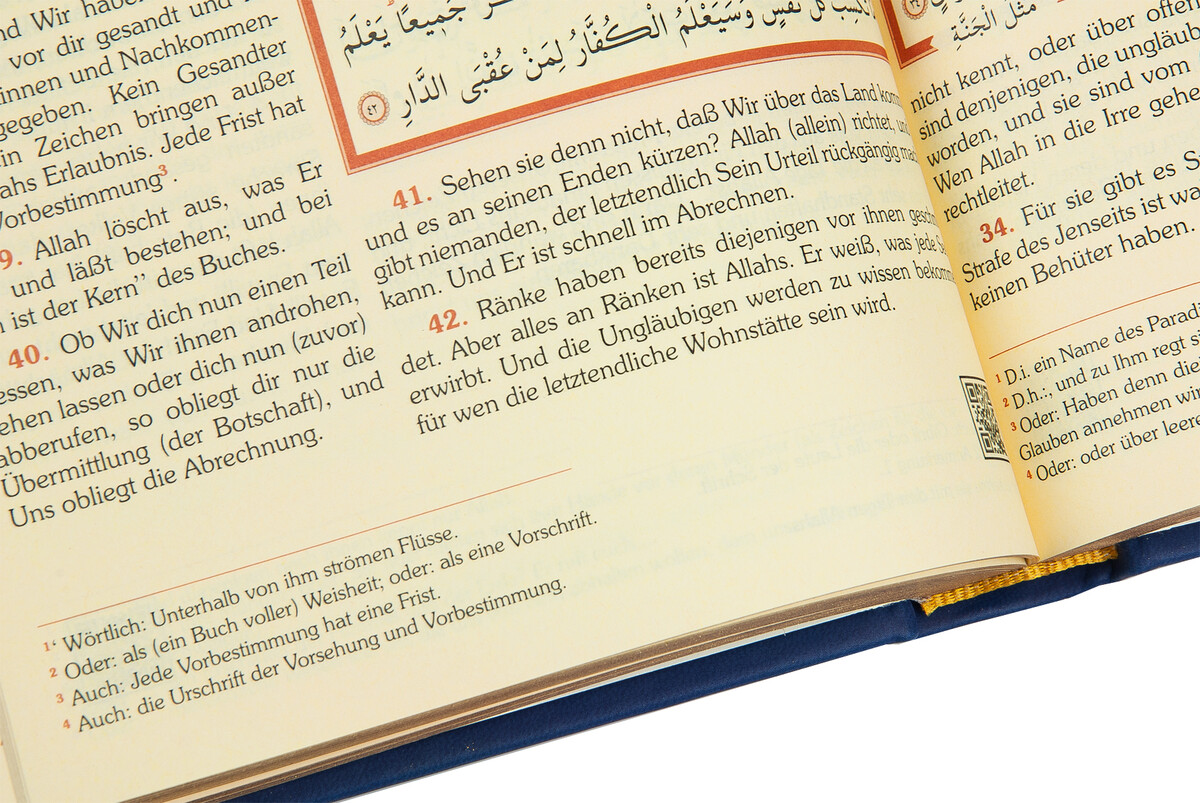 nd Wir habe
vor dir gesandt und i
innen und Nachkommen-
gegeben. Kein Gesandter
in Zeichen bringen außer
ahs Erlaubnis. Jede Frist hat
Vorbestimmung³.
9. Allah löscht aus, was Er
und läßt bestehen; und bei
n ist der Kern” des Buches.
40. Ob Wir dich nun einen Teil
essen, was Wir ihnen androhen,
ehen lassen oder dich nun (zuvor)
abberufen, so obliegt dir nur die
Übermittlung (der Botschaft), und
Uns obliegt die Abrechnung.
جَمِيعًا يَعْلَمُ
تَكْسِبُ كُلُّ نَفْسٍ وَسَيَعْلَمُ الْكُفَّارُ لِمَنْ عُقْبَى الدَّارِ ٤٢
41. Sehen sie denn nicht, daß Wir über das Land kom
und es an seinen Enden kürzen? Allah (allein) richtet, und
gibt niemanden, der letztendlich Sein Urteil rückgängig mac
kann. Und Er ist schnell im Abrechnen.
42. Ränke haben bereits diejenigen vor ihnen geschm
det. Aber alles an Ränken ist Allahs. Er weiß, was jede Se
erwirbt. Und die Ungläubigen werden zu wissen bekomm
für wen die letztendliche Wohnstätte sein wird.
1‘ Wörtlich: Unterhalb von ihm strömen Flüsse.
2 Oder: als (ein Buch voller) Weisheit; oder: als eine Vorschrift.
3 Auch: Jede Vorbestimmung hat eine Frist.
4 Auch: die Urschrift der Vorsehung und Vorbestimmung.
مَثَلُ الْجَنَّةِ
nicht kennt, oder über offen
sind denjenigen, die ungläub
worden, und sie sind vom
Wen Allah in die Irre gehe
rechtleitet.
34. Für sie gibt es S
Strafe des Jenseits ist wa
keinen Behüter haben.
1 D.i. ein Name des Paradi
2 D.h.:, und zu Ihm regt si
3 Oder: Haben denn die
Glauben annehmen wir
4 Oder: oder über leere